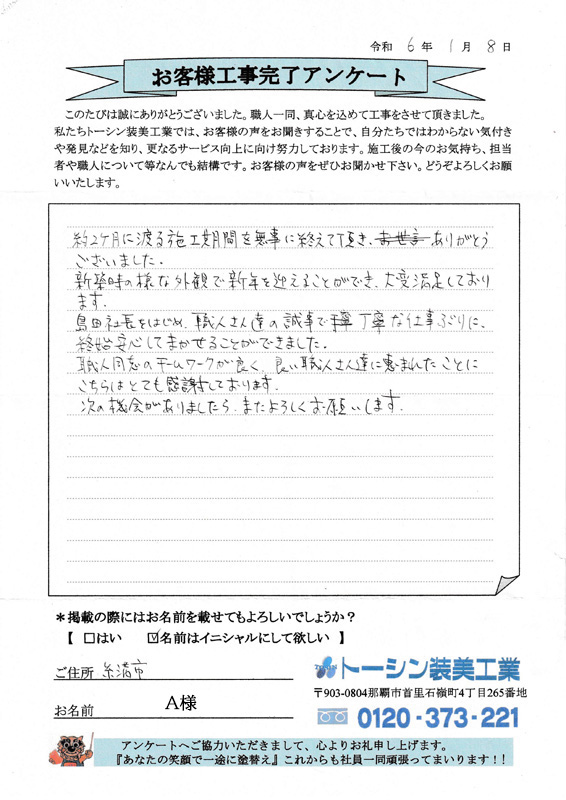 令和 6 年 1 月 8 日
お客様工事完了アンケート
このたびは誠にありがとうございました。職人一同、真心を込めて工事をさせて頂きました。
私たちトーシン装美工業では、お客様の声をお聞きすることで、自分たちではわからない気付き
や発見などを知り、更なるサービス向上に向け努力しております。施工後の今のお気持ち、担当
者や職人について等なんでも結構です。お客様の声をぜひお聞かせ下さい。どうぞよろしくお願
いいたします。
約2ヶ月に渡る施工期間を無事に終えて頂き、ありがとう
ございました。
新築時の様な外観で新年を迎えることができ、大変満足しており
ます。
島田社長をはじめ、職人さん達の誠実で丁寧な仕事ぶりに、
終始安心してまかせることができました。
職人同志のチームワークが良く、良い職人さん達に恵まれたことに
こちらはとても感謝しております。
次の機会がありましたら、またよろしくお願いします。
*掲載の際にはお名前を載せてもよろしいでしょうか?
【 □はい ☑名前はイニシャルにして欲しい 】
ご住所 糸満市
お名前 A様
トーシン装美工業
〒903-0804那覇市首里石嶺町4丁目265番地
0120-373-221
アンケートへご協力いただきまして、心よりお礼申し上げます。
『あなたの笑顔で一途に塗替え』これからも社員一同頑張ってまいります!!